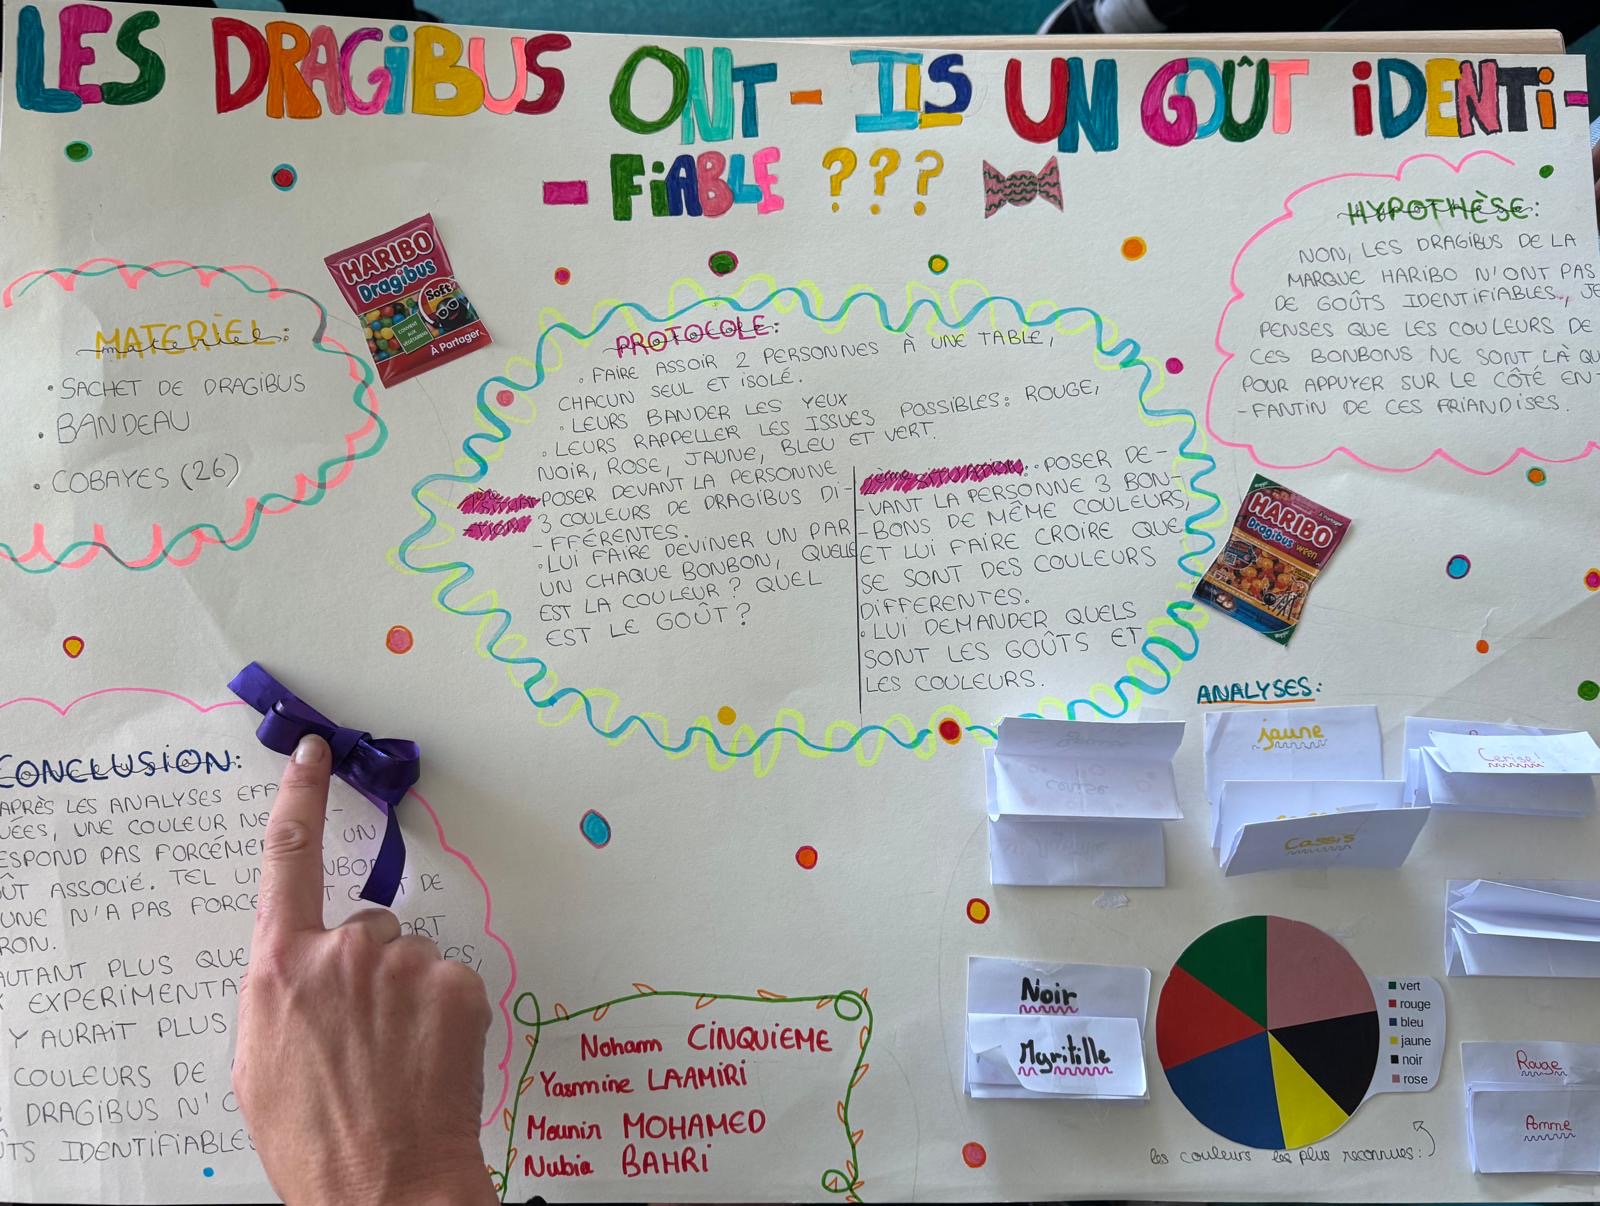 LES DRAGIBUS ONT-ILS UN GOÛT IDENTI-
-FIABLE ???
HARIBO
Dragibus
Soft
À Partager
MATERIEL:
materiel
• SACHET DE DRAGIBUS
• BANDEAU
• COBAYES (26)
PROTOCOLE:
• FAIRE ASSOIR 2 PERSONNES À UNE TABLE,
CHACUN SEUL ET ISOLÉ.
• LEURS BANDER LES YEUX
• LEURS RAPPELLER LES ISSUES POSSIBLES: ROUGE,
NOIR, ROSE, JAUNE, BLEU ET VERT.
POSER DEVANT LA PERSONNE
3 COULEURS DE DRAGIBUS DI-
-FFÉRENTES.
• LUI FAIRE DEVINER UN PAR
UN CHAQUE BONBON, QUELLE
EST LA COULEUR ? QUEL
EST LE GOÛT ?
2ème situation: • POSER DE-
-VANT LA PERSONNE 3 BON-
-BONS DE MÊME COULEURS,
ET LUI FAIRE CROIRE QUE
SE SONT DES COULEURS
DIFFERENTES.
• LUI DEMANDER QUELS
SONT LES GOÛTS ET
LES COULEURS.
HYPOTHÈSE:
NON, LES DRAGIBUS DE LA
MARQUE HARIBO N'ONT PAS
DE GOÛTS IDENTIFIABLES, JE
PENSES QUE LES COULEURS DE
CES BONBONS NE SONT LÀ QU
POUR APPUYER SUR LE CÔTÉ EN-
-FANTIN DE CES FRIANDISES.
HARIBO
Dragibus ween
CONCLUSION:
APRÈS LES ANALYSES EFF
UÉES, UNE COULEUR NE
ESPOND PAS FORCÉME UN
ÛT ASSOCIÉ. TEL UN NBON
UNE N'A PAS FORCE DE
RON.
AUTANT PLUS QUE ORT
EXPERIMENTA ES,
Y AURAIT PLUS
COULEURS DE
DRAGIBUS N'
ÛTS IDENTIFIABLES
Noham CINQUIEME
Yasmine LAAMIRI
Mounir MOHAMED
Nubia BAHRI
ANALYSES:
jaune
Cassis
Cerise!
Noir
Myritille
Rouge
Pomme
vert
rouge
bleu
jaune
noir
rose
les couleurs les plus reconnues: